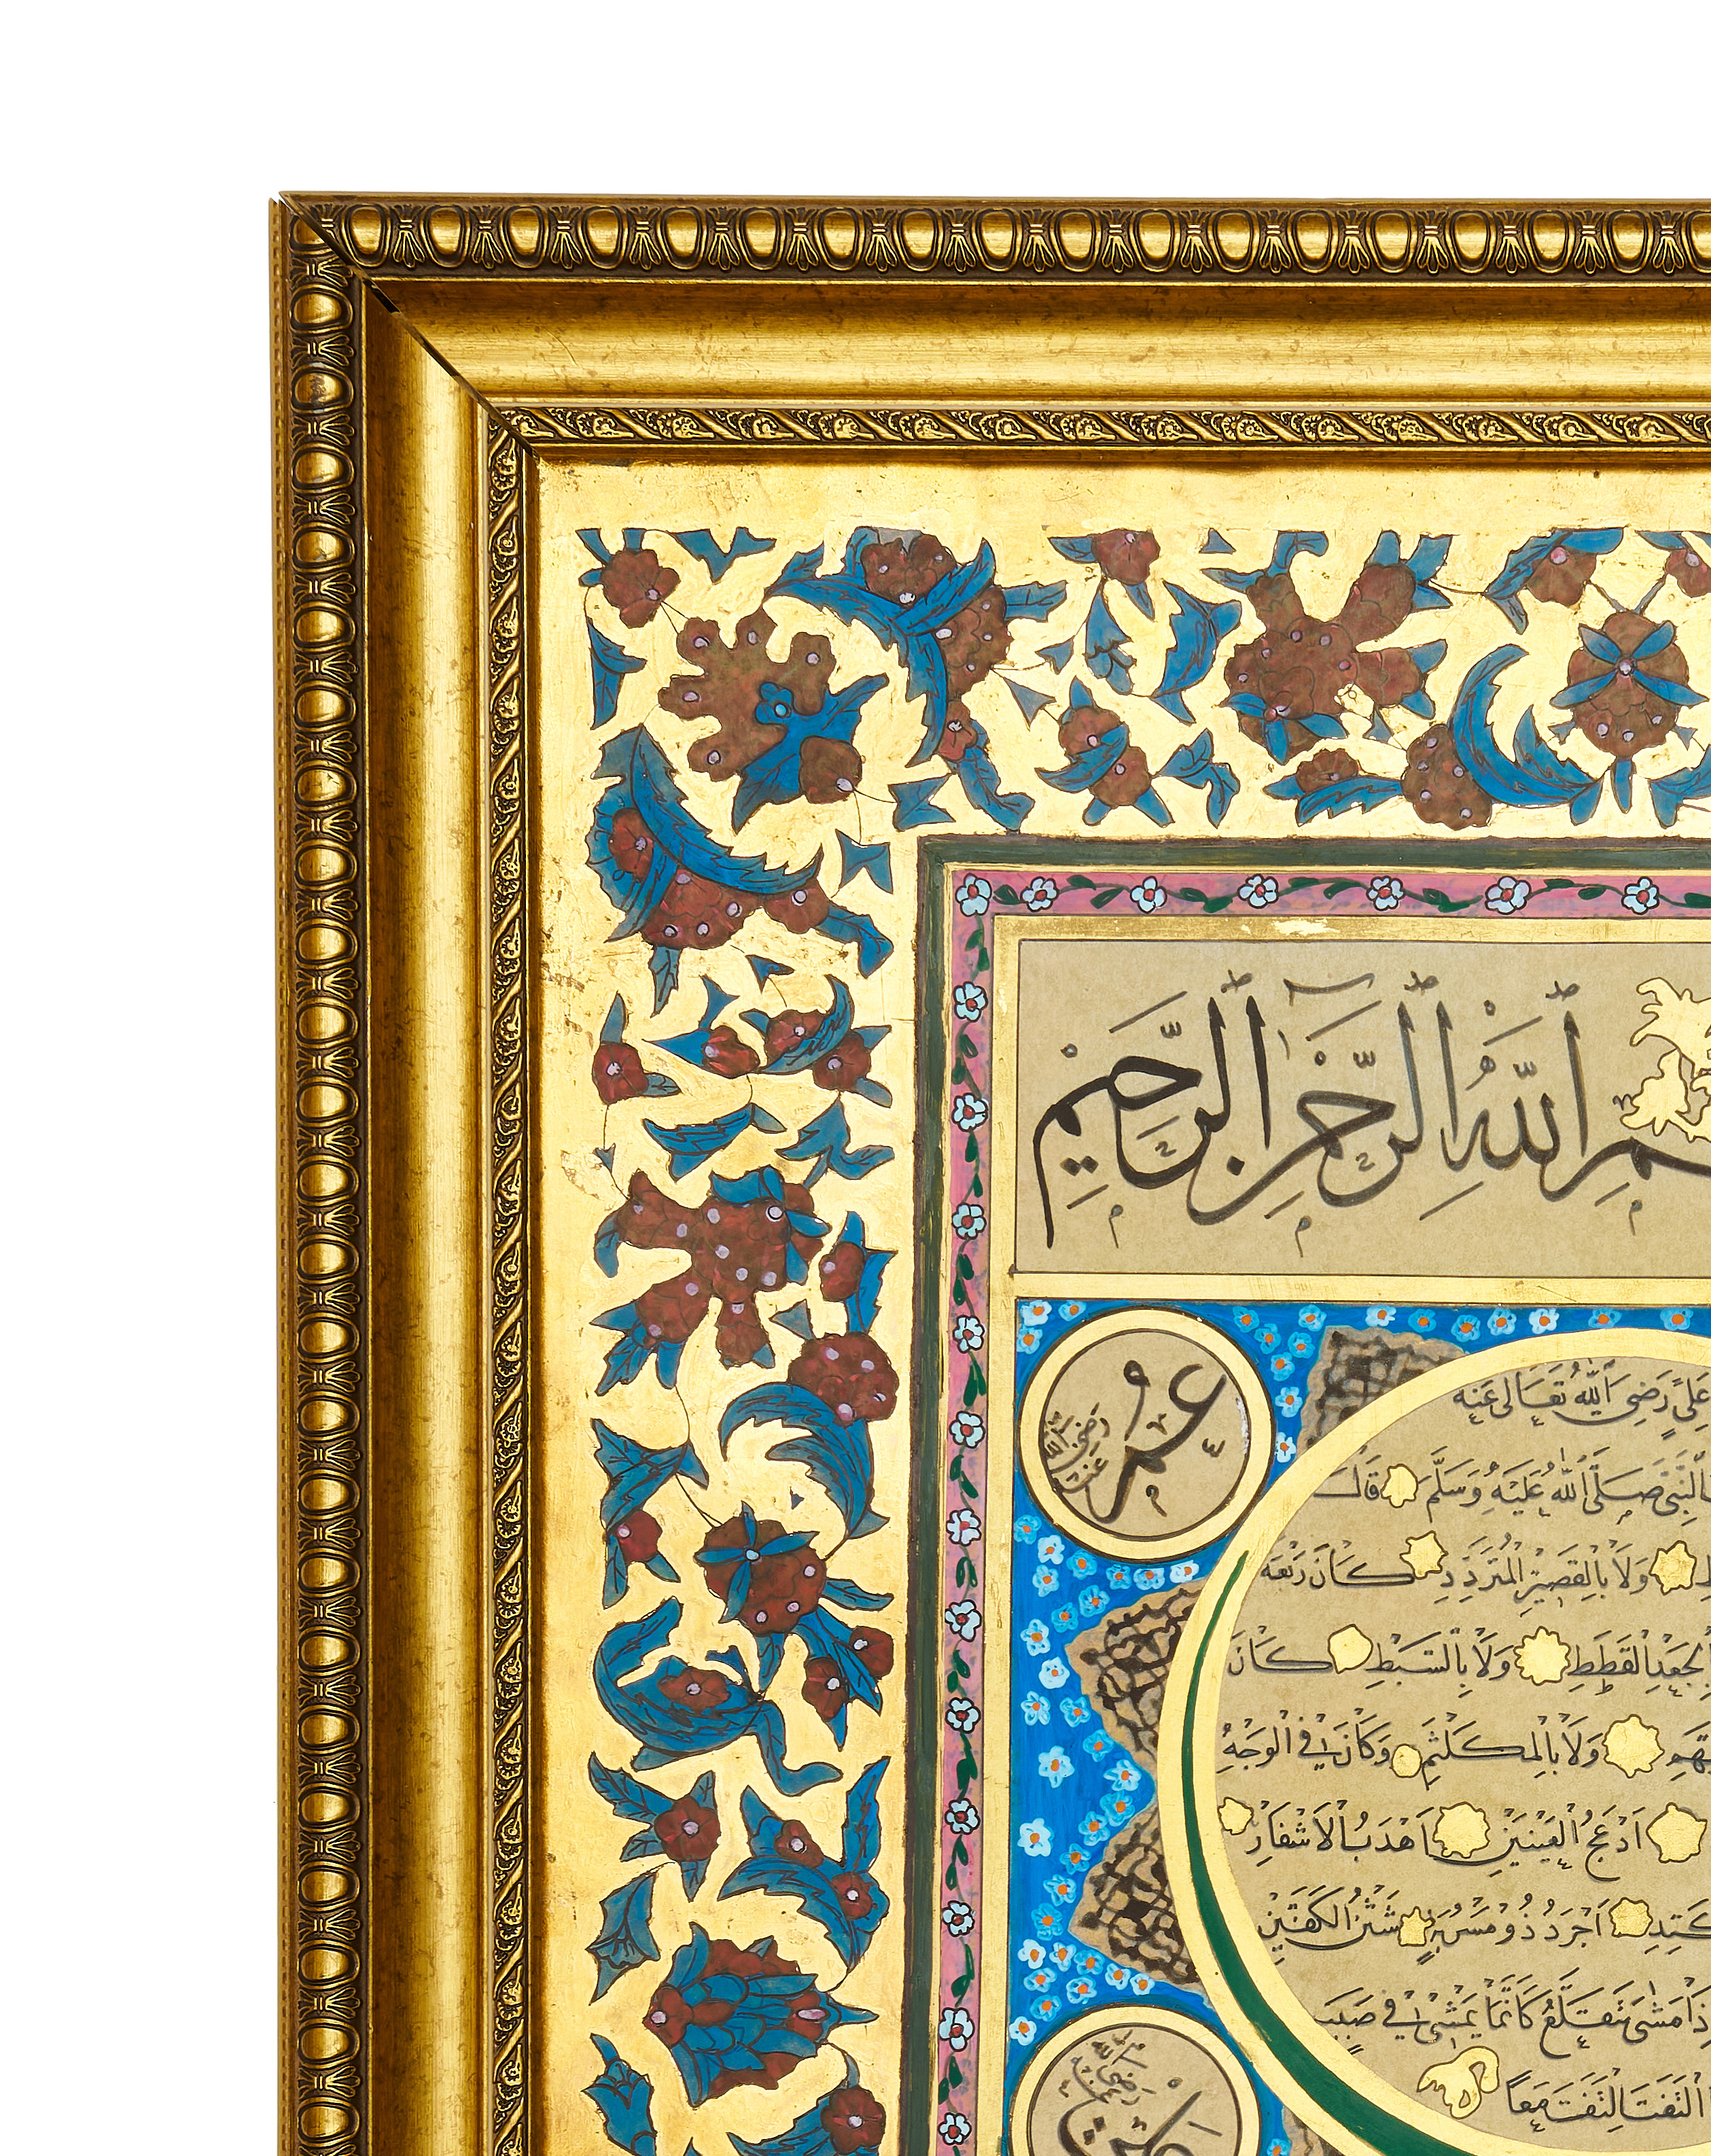 ـم الله الرحمن الرحيم
عمر
رضي الله عنه
علي رضي الله تعالى عنه
النبي صلى الله عليه وسلم قال
ولا بالقصير المتردد كان ربعة
بالجعد القطط ولا بالسبط كان
ولا بالمكلثم وكان في الوجه
ادعج العينين اهدب الاشفار
اجرد ذو مسربة شثن الكفين
مشى يتقلع كانما يمشي في صبب
التفت التفت معا
علي
رضي الله عنه